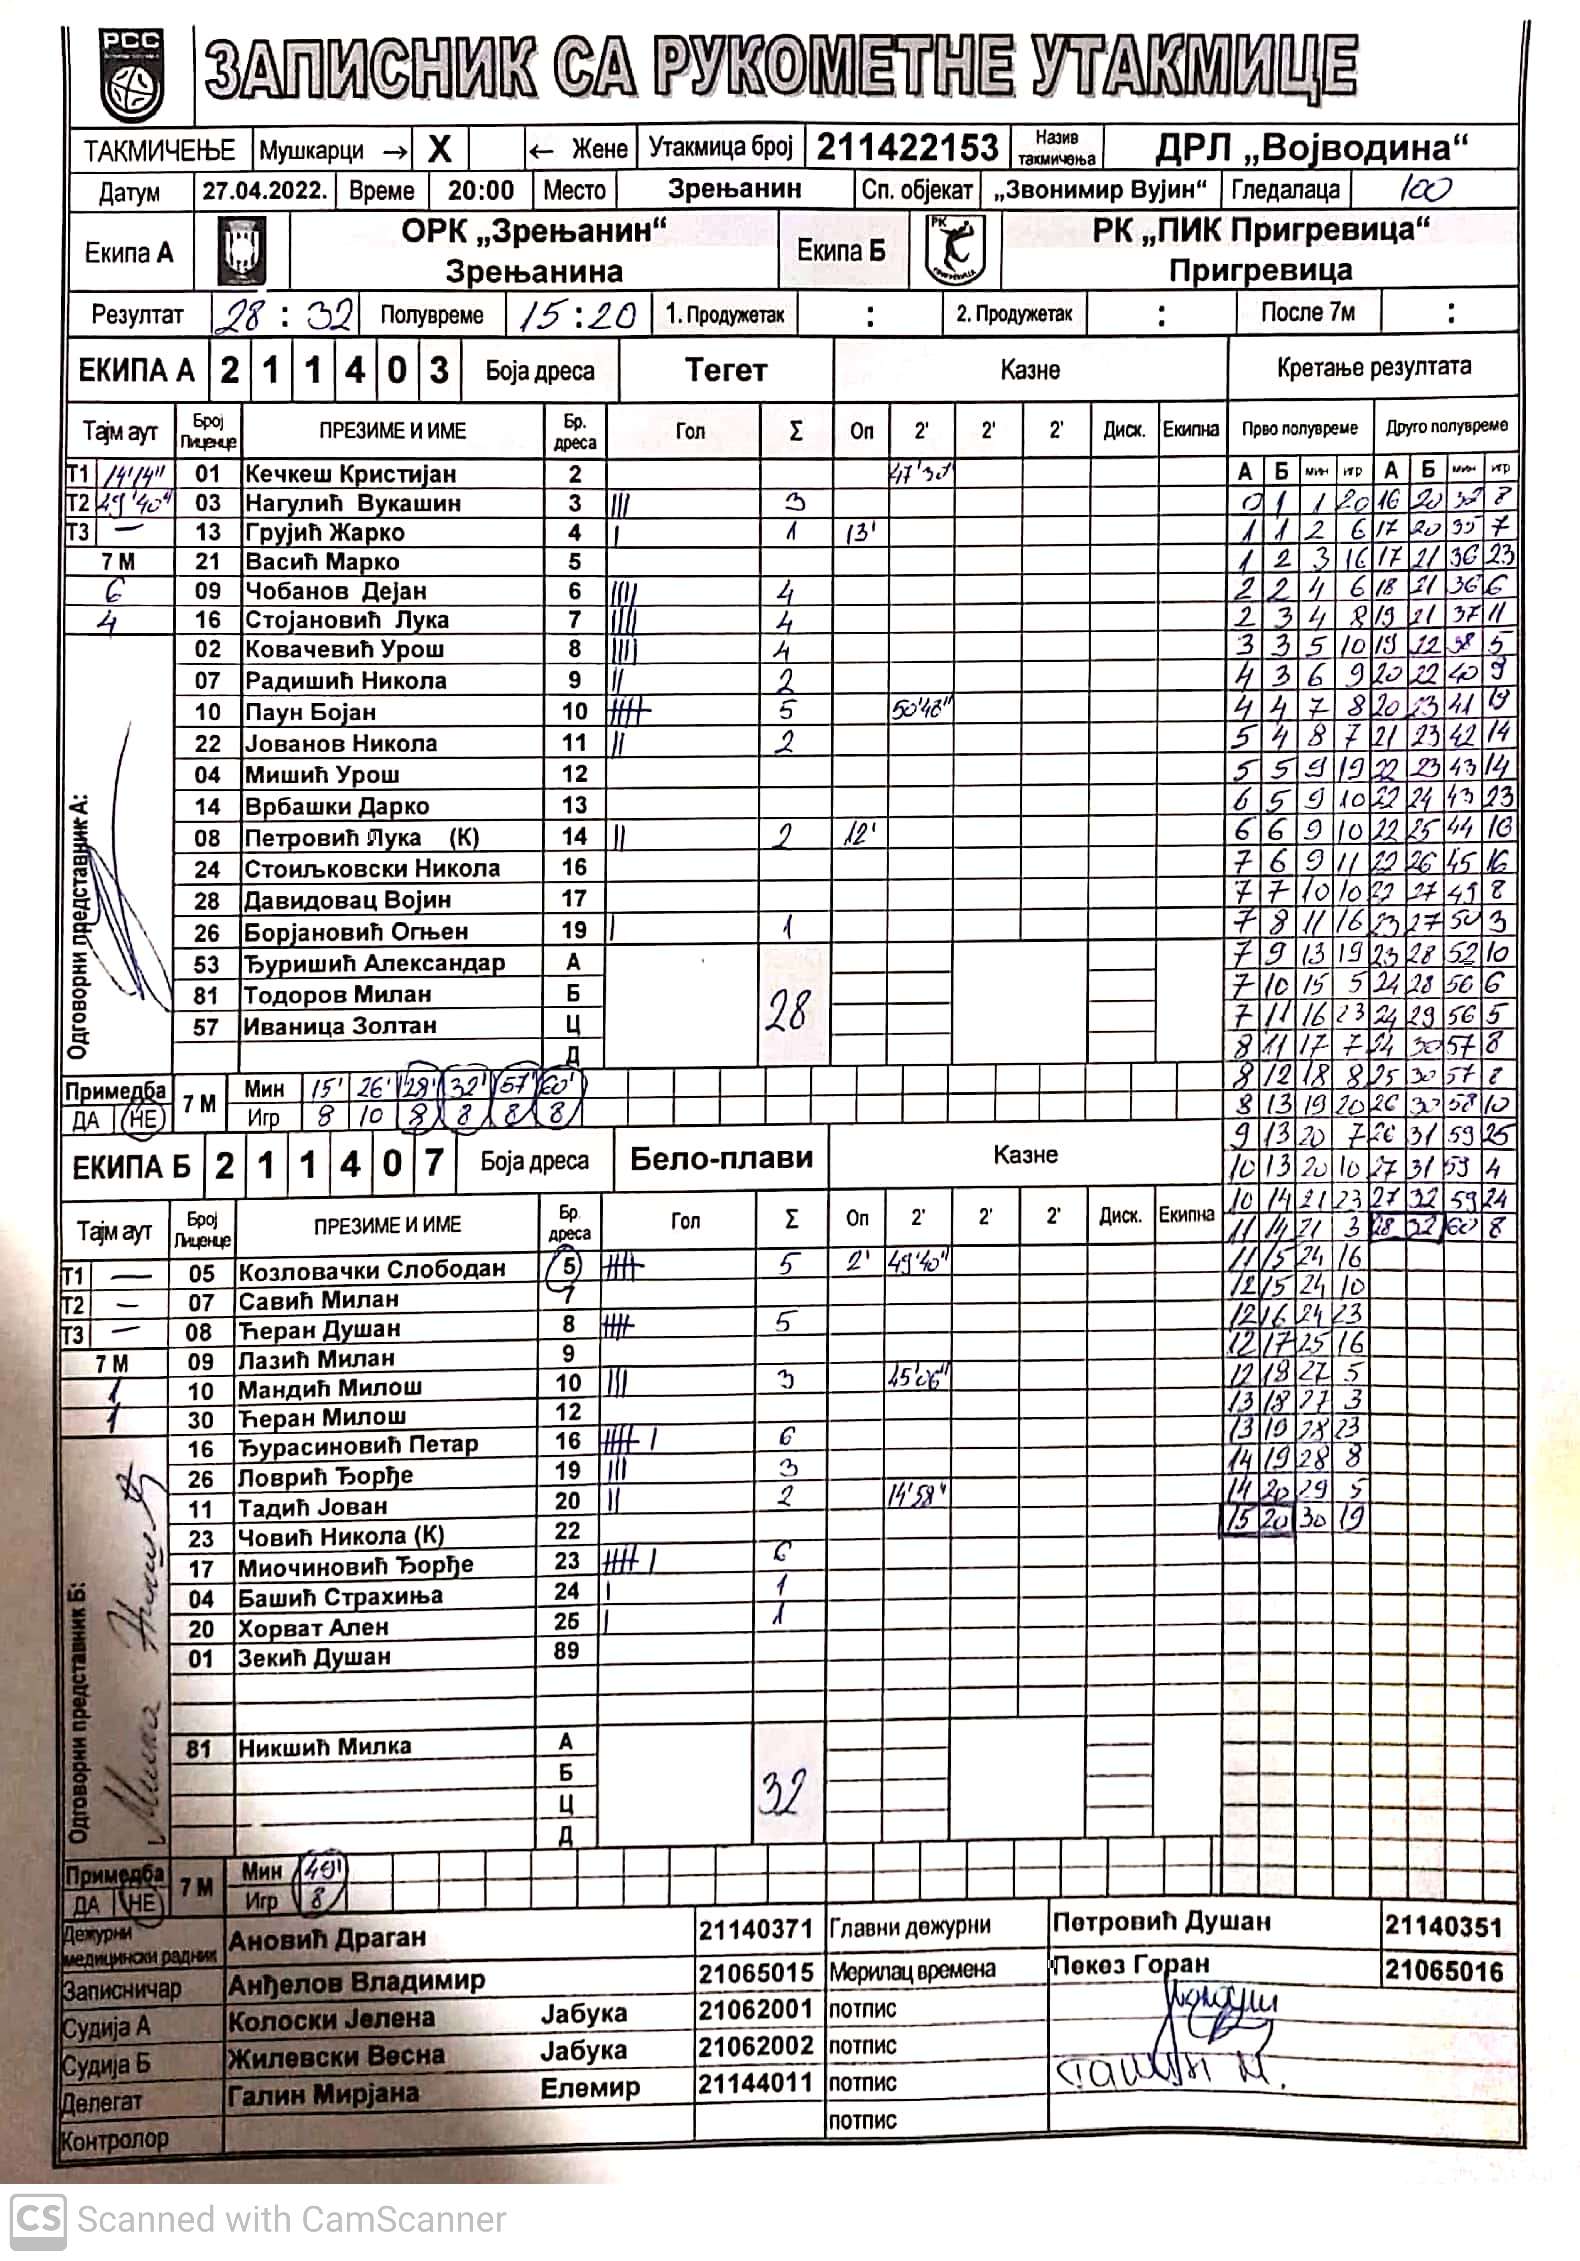 РСС
ЗАПИСНИК СА РУКОМЕТНЕ УТАКМИЦЕ
ТАКМИЧЕЊЕ Мушкарци → X ← Жене Утакмица број 211422153 Назив такмичења ДРЛ „Војводина“
Датум 27.04.2022. Време 20:00 Место Зрењанин Сп. објекат „Звонимир Вујин“ Гледалаца 100
Екипа А ОРК „Зрењанин“ Зрењанина Екипа Б РК „ПИК Пригревица“ Пригревица
Резултат 28 : 32 Полувреме 15:20 1. Продужетак : 2. Продужетак : После 7м :
ЕКИПА А 2 1 1 4 0 3 Боја дреса Тегет Казне Кретање резултата
Тајм аут Број Лиценце ПРЕЗИМЕ И ИМЕ Бр. дреса Гол Σ Оп 2' 2' 2' Диск. Екипна Прво полувреме Друго полувреме
Т1 14'14" 01 Кечкеш Кристијан 2 47'30" А Б мин игр А Б мин игр
Т2 49'40" 03 Нагулић Вукашин 3 ||| 3 0 1 1 20 16 20 32 8
Т3 — 13 Грујић Жарко 4 | 1 13' 1 1 2 6 17 20 35 7
7 М 21 Васић Марко 5 1 2 3 16 17 21 36 23
6 09 Чобанов Дејан 6 |||| 4 2 2 4 6 18 21 36 6
4 16 Стојановић Лука 7 |||| 4 2 3 4 8 19 21 37 11
02 Ковачевић Урош 8 |||| 4 3 3 5 10 19 22 38 5
07 Радишић Никола 9 || 2 4 3 6 9 20 22 40 9
10 Паун Бојан 10 5 50'48" 4 4 7 8 20 23 41 19
22 Јованов Никола 11 || 2 5 4 8 7 21 23 42 14
04 Мишић Урош 12 5 5 9 19 22 23 43 14
14 Врбашки Дарко 13 6 5 9 10 22 24 43 23
08 Петровић Лука (К) 14 || 2 12' 6 6 9 10 22 25 44 16
24 Стоиљковски Никола 16 7 6 9 11 22 26 45 16
28 Давидовац Војин 17 7 7 10 10 22 27 49 8
26 Борјановић Огњен 19 | 1 7 8 11 16 23 27 50 3
53 Ђуришић Александар А 7 9 13 19 23 28 52 10
81 Тодоров Милан Б 28 7 10 15 5 24 28 56 6
57 Иваница Золтан Ц 7 11 16 23 24 29 56 5
Д 8 11 17 7 24 30 57 8
Одговорни представник А:
Примедба 7 М Мин 15' 26' 28' 32' 57' 60' 8 12 18 8 25 30 57 8
ДА НЕ Игр 8 10 8 8 8 8 8 13 19 20 26 30 58 10
9 13 20 7 26 31 59 25
ЕКИПА Б 2 1 1 4 0 7 Боја дреса Бело-плави Казне 10 13 20 10 27 31 59 4
10 14 21 23 27 32 59 24
Тајм аут Број Лиценце ПРЕЗИМЕ И ИМЕ Бр. дреса Гол Σ Оп 2' 2' 2' Диск. Екипна 11 14 21 3 28 32 60 8
Т1 — 05 Козловачки Слободан 5 5 2' 49'40" 11 15 24 16
Т2 — 07 Савић Милан 7 12 15 24 10
Т3 — 08 Ћеран Душан 8 5 12 16 24 23
7 М 09 Лазић Милан 9 12 17 25 16
1 10 Мандић Милош 10 ||| 3 45'06" 12 18 27 5
1 30 Ћеран Милош 12 13 18 27 3
16 Ђурасиновић Петар 16 6 13 19 28 23
26 Ловрић Ђорђе 19 ||| 3 14 19 28 8
11 Тадић Јован 20 || 2 14'58" 14 20 29 5
23 Човић Никола (К) 22 15 20 30 19
17 Миочиновић Ђорђе 23 6
04 Башић Страхиња 24 | 1
20 Хорват Ален 25 | 1
01 Зекић Душан 89
81 Никшић Милка А
Б 32
Ц
Д
Одговорни представник Б: Милка Никшић
Примедба 7 М Мин 40'
ДА НЕ Игр 8
Дежурни медицински радник Ановић Драган 21140371 Главни дежурни Петровић Душан 21140351
Записничар Анђелов Владимир 21065015 Мерилац времена Пекез Горан 21065016
Судија А Колоски Јелена Јабука 21062001 потпис
Судија Б Жилевски Весна Јабука 21062002 потпис
Делегат Галин Мирјана Елемир 21144011 потпис
Контролор потпис
CS Scanned with CamScanner